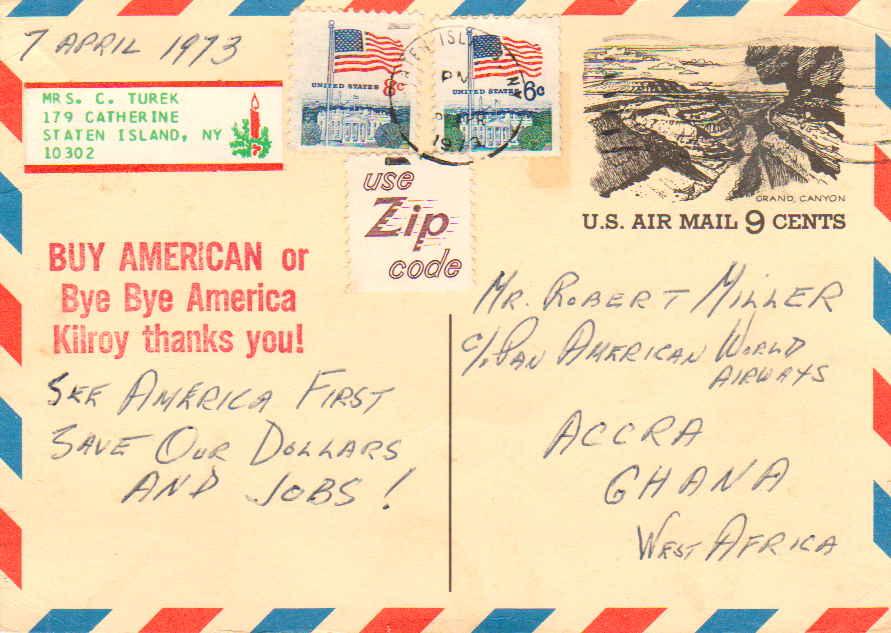 7 APRIL 1973
MRS. C. TUREK
179 CATHERINE
STATEN ISLAND, NY
10302
UNITED STATES 8c
UNITED STATES 6c
PM
1973
use
Zip
code
GRAND CANYON
U.S. AIR MAIL 9 CENTS
BUY AMERICAN or
Bye Bye America
Kilroy thanks you!
SEE AMERICA FIRST
SAVE OUR DOLLARS
AND JOBS!
MR. ROBERT MILLER
c/. PAN AMERICAN WORLD
AIRWAYS
ACCRA
GHANA
WEST AFRICA